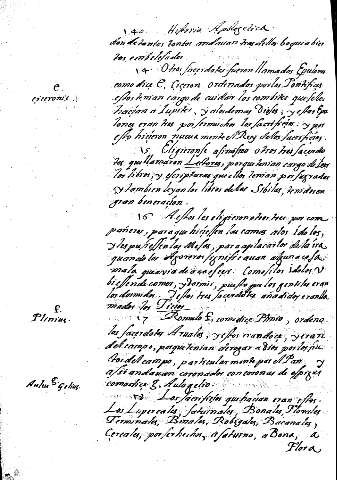 140 Historia Apologetica
donde tantos tontos andauan tras dellos boquiabier
tos embelesados
14 Otros sacerdotes fueron llamados Epulones
como dize Ciceron ordenados por los Pontifices
estos tenian cargo de cuidar los combites que se
hazian a Jupiter, y a los demas Dioses, y estos Epu
lones eran tres por numa de los sacrificios: y por
esto hizieron nueuamente Rey de los sacrificios.
15 Eligieronse assimismo otros tres sacerdo
tes que llamaron porque tenian cargo de leer
los libros, y escripturas que ellos tenian por sagradas
y tambien leyan los libros de las Sibilas, tenidos en
gran beneracion.
16 A estos les eligieron otros tres por com
pañeros, para que hiziessen las camas a los idolos,
y les pusiessen las Mesas, para aplacarles de la ira
quando los agoreros significauan alguna cosa
mala que auia de acaescer. Como si los idolos v
biessen de comer, y dormir, puesto que los gentiles eran
los dormidos. Y estos tres sacerdotes añadidos eran lla
mados los
17 Romulo, como dize Plinio, ordeno
los sacerdotes Aruales, y estos eran doze, y eran
del campo, porque tenian de rogar a dios por los fru
ctos del campo, particularmente por el Pan, y
assi andauan coronados con coronas de espigas
como dize Aulo gelio.
18 Los sacrificios que hazian eran estos
Los Lupercales, saturnales, Bonales, Florales
Terminales, Robigales, Bacanales,
Cereales, por ser hechos, a saturno, a Bona, a
Flora
ciceronis.
Plinius.
Aulus Gelius.